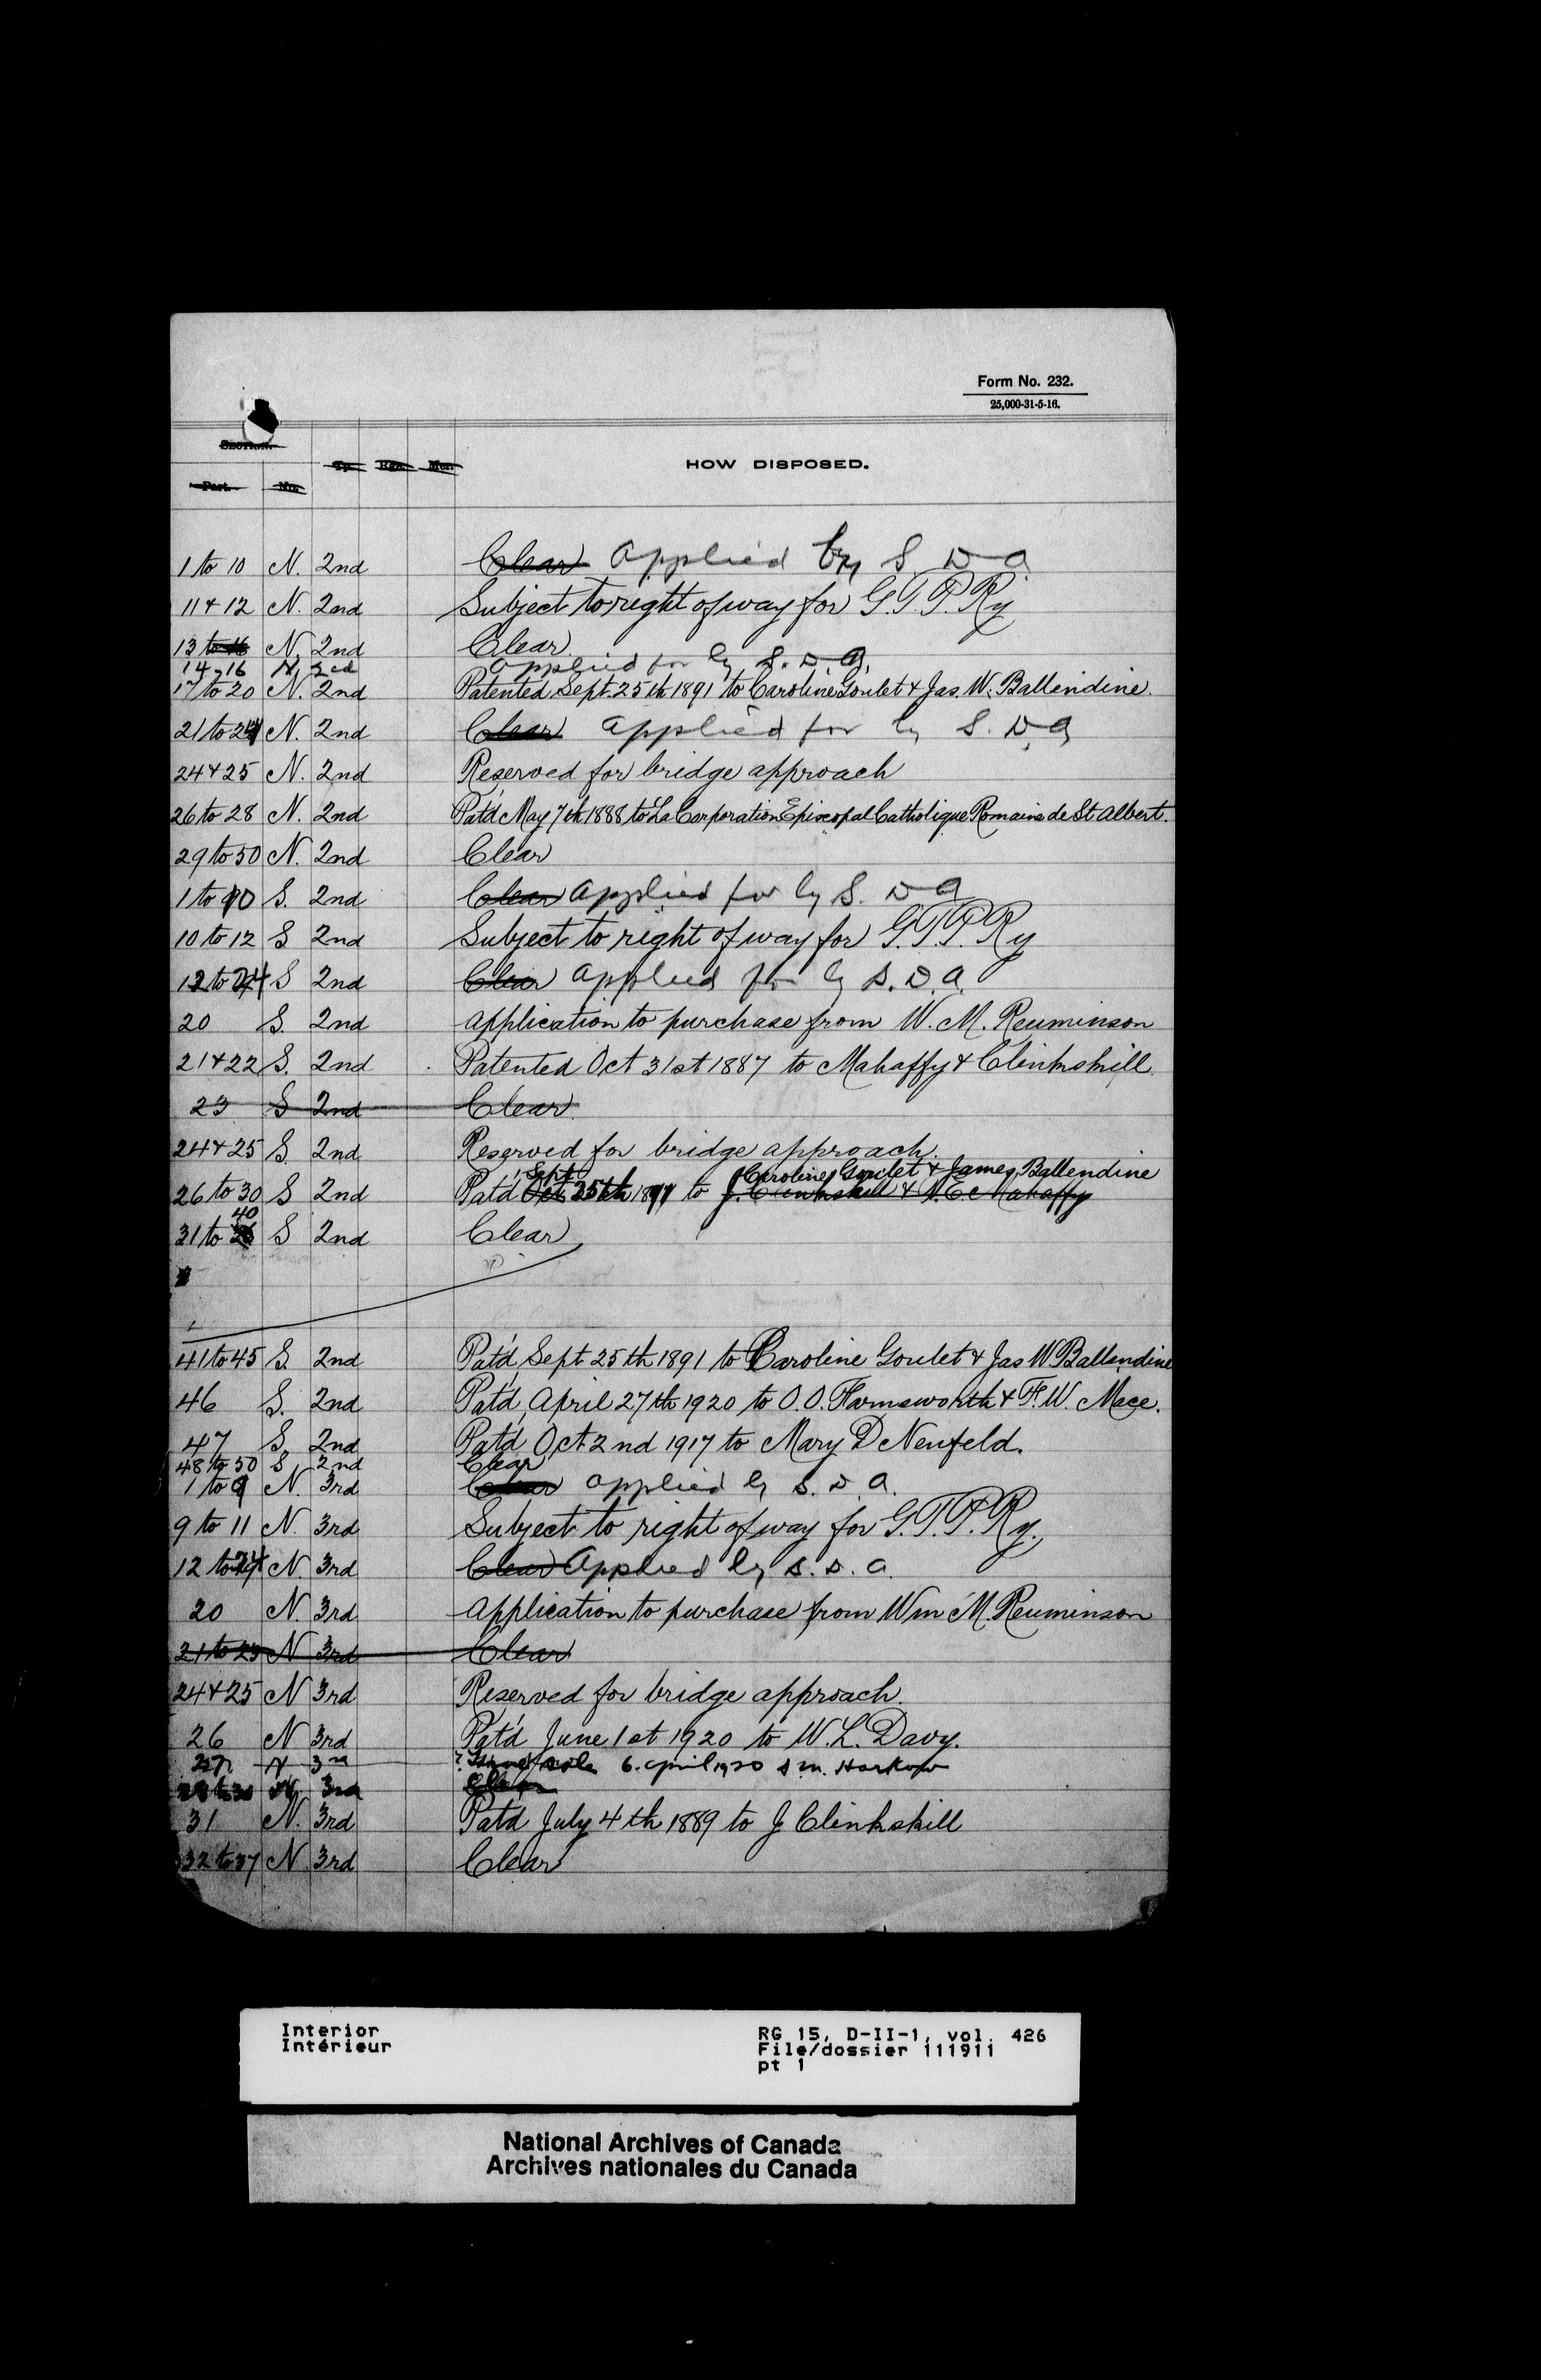 Form No. 232.
25,000-31-5-16.
Section.
Part. No. Tp. Rge. Mer. HOW DISPOSED.
1 to 10 N. 2nd Clear Applied by S. D. A.
11 & 12 N. 2nd Subject to right of way for G.T.P. Ry
13 to 16 N. 2nd Clear
14-16 N. 2nd applied for by S. D. A.
17 to 20 N. 2nd Patented Sept. 25th 1891 to Caroline Goulet & Jas. W. Ballendine.
21 to N. 2nd Clear applied for by S. D. A
24 & 25 N. 2nd Reserved for bridge approach
26 to 28 N. 2nd Pat'd May 7th 1888 to La Corporation Episcopal Catholique Romaine de St Albert.
29 to 50 N. 2nd Clear
1 to S. 2nd Clear Applied for by S. D A
10 to 12 S 2nd Subject to right of way for G.T.P. Ry
to S 2nd Clear applied for by S. D. A.
20 S. 2nd Application to purchase from W. M. Reuminson
21 & 22 S. 2nd Patented Oct 31st 1887 to Mahaffy & Clinkskill.
23 S 2nd Clear
24 & 25 S. 2nd Reserved for bridge approach.
Sept Caroline Goulet & James Ballendine
26 to 30 S 2nd Pat'd Oct 25th 1891 to J. Clinkskill & Mahaffy
40
31 to S 2nd Clear
41 to 45 S. 2nd Pat'd Sept 25th 1891 to Caroline Goulet & Jas W Ballendine
46 S. 2nd Pat'd April 27th 1920 to O. O. Farnsworth & F. W. Mace.
47 S. 2nd Pat'd Oct 2nd 1917 to Mary D Neufeld.
48 to 50 S 2nd Clear
1 to 9 N. 3rd Clear applied by S. D. A.
9 to 11 N. 3rd Subject to right of way for G.T.P. Ry.
12 to N. 3rd Clear Applied by S. D. A.
20 N. 3rd Application to purchase from Wm M. Reuminson
21 to 23 N 3rd Clear
24 & 25 N 3rd Reserved for bridge approach.
26 N 3rd Pat'd June 1st 1920 to W. L. Davy.
27 N 3rd sale 6. april 1920
N. 3rd Clear
31 N. 3rd Pat'd July 4th 1889 to J Clinkskill
32 to 37 N. 3rd Clear
Interior
Intérieur
RG 15, D-II-1, vol. 426
File/dossier 111911
pt 1
National Archives of Canada
Archives nationales du Canada